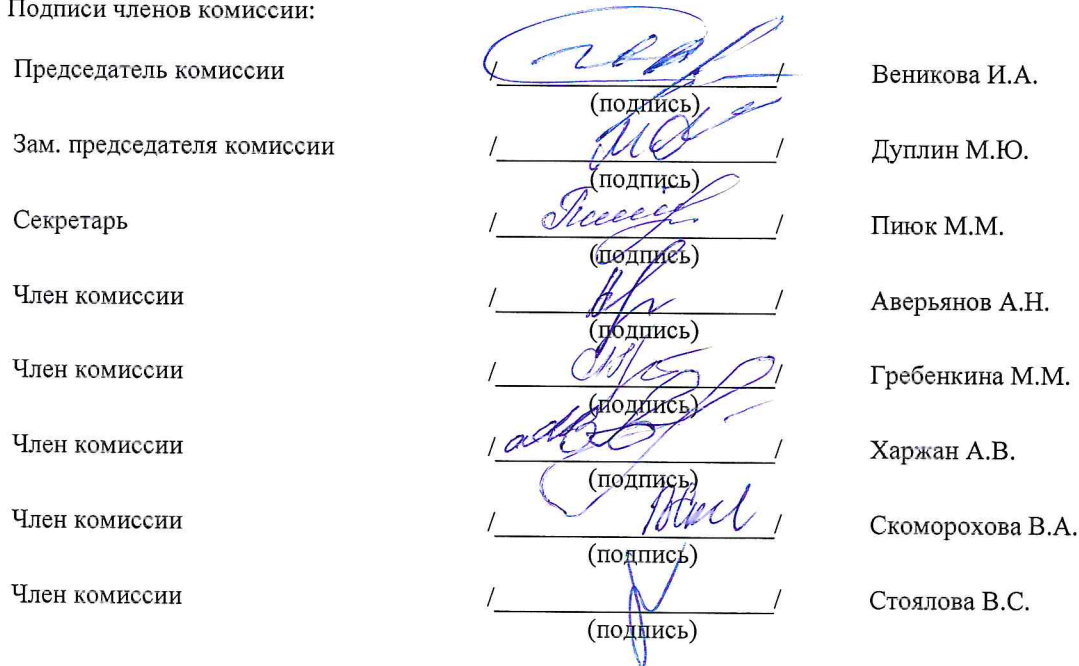 Подписи членов комиссии:
Председатель комиссии / / Веникова И.А.
(подпись)
Зам. председателя комиссии / / Дуплин М.Ю.
(подпись)
Секретарь / / Пиюк М.М.
(подпись)
Член комиссии / / Аверьянов А.Н.
(подпись)
Член комиссии / / Гребенкина М.М.
(подпись)
Член комиссии / / Харжан А.В.
(подпись)
Член комиссии / / Скоморохова В.А.
(подпись)
Член комиссии / / Стоялова В.С.
(подпись)